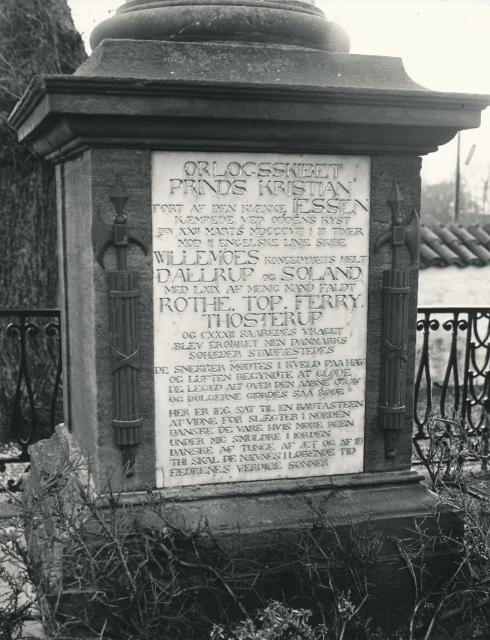 ORLOGSSKIBET
PRINDS KRISTIAN
FØRT AF DEN KÆKKE JESSEN
KÆMPEDE VED ODDENS KYST
DEN XXII MARTS MDCCCVIII I III TIMER
MOD II ENGELSKE LINIE SKIBE
WILLEMOES KONGEDYBETS HELT
DALLRUP OG SOLAND
MED LXIX AF MENIG MAND FALDT
ROTHE. TOP. FERRY.
THOSTERUP
OG CXXXII SAAREDES VRAGET
BLEV ERØBRET MEN DANMARKS
SØHÆDER STADFÆSTEDES
DE SNEKKER MØDTES I KVELD PAA HAV
OG LUFTEN BEGYNDTE AT GLØDE
DE LEGED ALT OVER DEN AABNE GRAV
OG BØLGERNE GJØRDES SAA RØDE
HER ER IEG SAT TIL EN BAUTASTEEN
AT VIDNE FOR SLÆGTER I NORDEN
DANSKE DE VARE HVIS MØRE BEEN
UNDER MIG SMULDRE I JORDEN
DANSKE AF TUNGE AF ÆT OG AF ID
THI SKAL DE NÆVNES I LØBENDE TID
FÆDRENES VÆRDIGE SØNNER